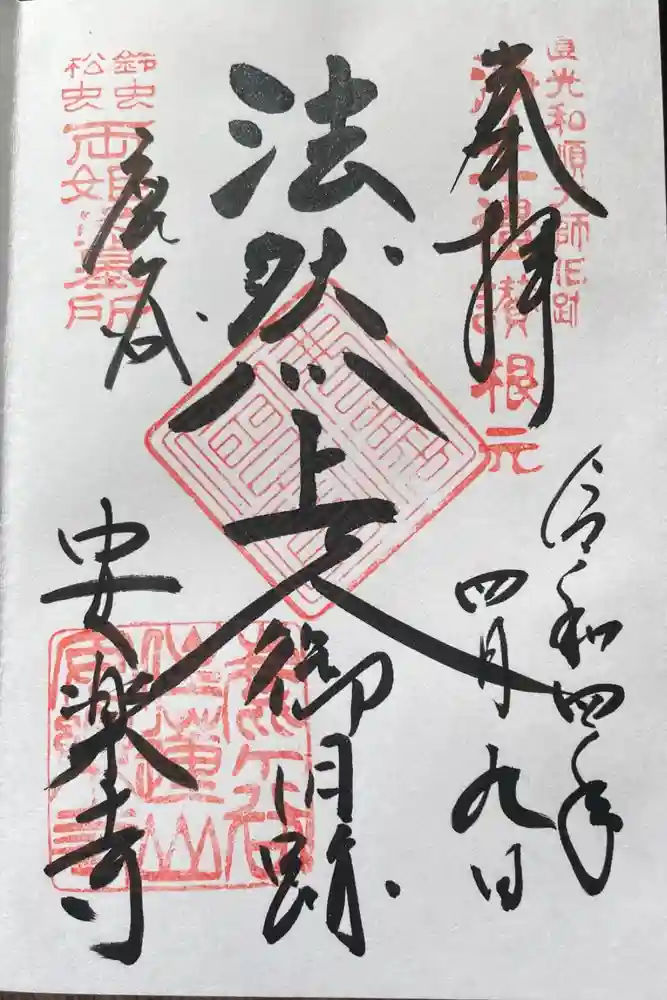 奉拝
令和四年
四月九日
法然上人御旧跡
鹿谷
安楽寺
浄土禮讃根元
鈴虫
松虫
両姫御墓所
鹿ヶ谷
住蓮山
安楽寺